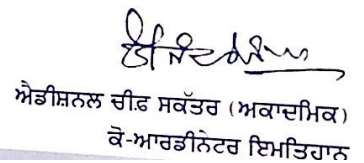 ਐਡੀਸ਼ਨਲ ਚੀਫ਼ ਸਕੱਤਰ (ਅਕਾਦਮਿਕ)
ਕੋ-ਆਰਡੀਨੇਟਰ ਇਮਤਿਹਾਨ